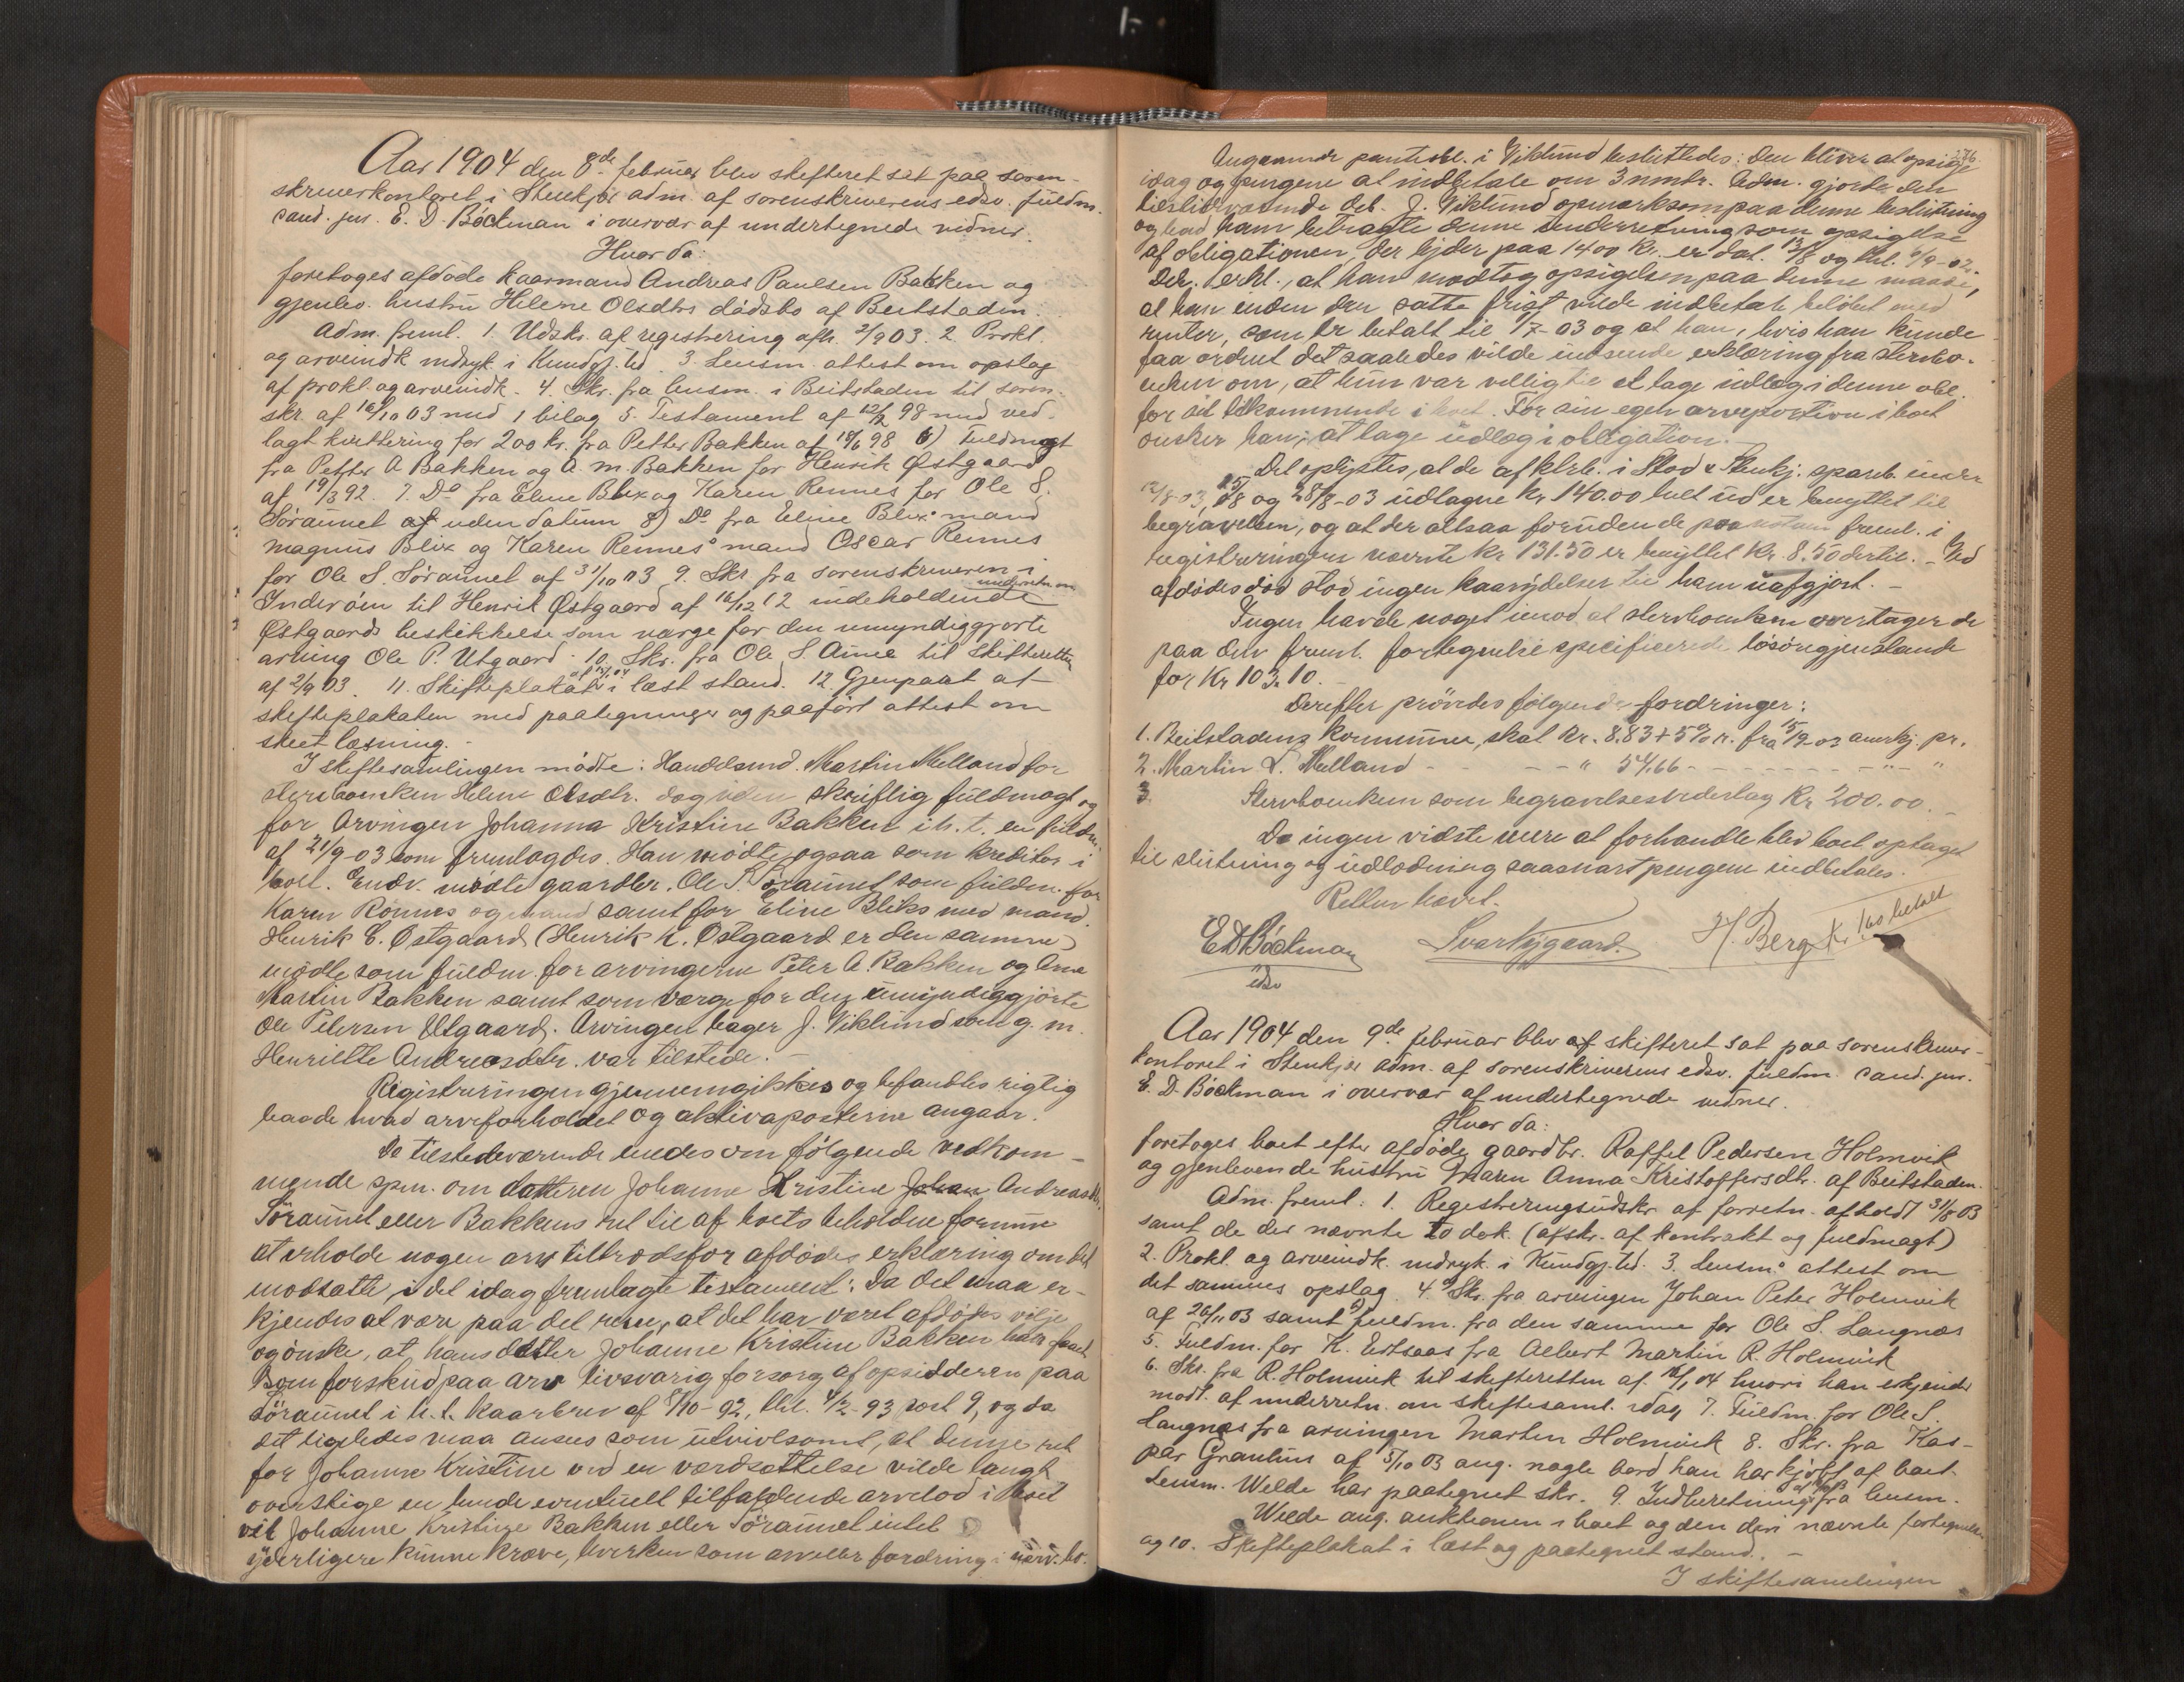 Aar 1904 den 8de februar blev skifteret sat paa soren-
skriverkontoret i Stenkjær adm. af sorenskriverens edsv. fuldm.
cand. jur. E. D. Böckman i overvær af undertegnede vidner.
Hvor da:
foretoges afdöde kaarmand Andreas Paulsen Bakken og
gjenlev. hustru Helene Olsdtrs dödsbo af Beitstaden.
Adm. freml. 1. Udskr. af registrering afh. 2/9 03. 2. Prokl.
og arveindk. indryk. i Kundgj. tid. 3. Lensm. attest om opslag
af prokl. og arveindk. 4. Skr. fra lensm. i Beitstaden til soren-
skr. af 16/10 03 med 1 bilag 5. Testament af 22/2 98 med ved-
lagt kvittering for 200 kr. fra Petter Bakken af 18/6 98 6) Fuldmagt
fra Petter A Bakken og A. M. Bakken for Henrik Østgaard
af 19/3 92. 7. Do fra Eline Blix og Karen Rennes for Ole S.
Söraunet af uden datum 8) Do fra Eline Blix' mand
Magnus Blix og Karen Rennes' mand Oscar Rennes
for Ole S. Söraunet af 31/10 03 9. Skr. fra sorenskriveren i
Inderöen til Henrik Østgaard af 16/12 12 indeholdende underretn. om
Østgaards beskikkelse som værge for den umyndiggjorte
arving Ole P. Utgaard. 10. Skr. fra Ole S. Aune til Skifteretten
af 2/9 03. 11. Skifteplakat i læst stand. 12 Gjenpart af
skifteplakaten med paategninger og paaført attest om
skeet læsning.
I skiftesamlingen mödte: Handelsmd. Martin Melland for
stervboenken Helene Olsdtr. dog uden skriftlig fuldmagt og
for Arvingen Johanna Kristine Bakken i h. t. en fuldm.
af 21/9-03 som fremlagdes. Han mödte ogsaa som kreditor i
boet. Endv. mödte gaardbr. Ole S. Söraunet som fuldm. for
Karen Rönnes og mand samt for Eline Bliks med mand.
Henrik E. Østgaard (Henrik K. Østgaard er den samme)
mödte som fuldm. for arvingerne Peter A. Bakken og Arne
Martin Bakken samt som værge for den umyndiggjörte
Ole Petersen Utgaard. Arvingen bager J. Viklund som g. m.
Henriette Andreasdtr. var tilstede.
Registreringen gjennemgikkes og befandtes rigtig
baade hvad arveforholdet og aktivaposterne angaar.
De tilstedeværende enedes om följende vedkom-
mende spm. om datteren Johanne Kristine Johan Andreasdtr.
Söraunet eller Bakkens ret til af boets beholdne formue
at erholde nogen arv tiltrodsfor afdödes erklæring om det
modsatte, i det idag fremlagte testament: Da det maa er-
kjendes at være paa det rene, at det har været afdödes vilje
og önske, at hans datter Johanne Kristine Bakken havde faaet
som forskud paa arv livsvarig forsorg af opsidderen paa
Söraunet i h. t. kaarbrev af 8/10-92, thl. 4/2-93 post 9, og da
det ligeledes maa ansees som utvivlsomt, at denne ret
for Johanne Kristine ved en værdsættelse vilde langt
overstige en hende eventuelt tilfaldende arvelod i boet
vil Johanne Kristine Bakken eller Söraunet intet
yderligere kunne kræve, hverken som arv eller fordring i nærv. bo.
76.
Angaaende pantobl. i Viklund besluttedes: Den bliver at opsige
idag og pengene at indbetale om 3 mndr. Adm. gjorde den
tilstedeværende deb. J. Viklund opmærksom paa denne beslutning
og bad ham betragte denne underretning som opsigelse
af obligationen, der lyder paa 1400 kr. er dat. 13/8 og thl. 6/9-02.
Deb. erkl., at han modtog opsigelsen paa denne maade,
at han inden den satte frist vilde indbetale belöbet med
renter, som er betalt til 1/7-03 og at han, hvis han kunde
faa ordnet det saaledes vilde indsende erklæring fra stervbo-
enken om, at hun var villig til at tage udlæg i denne obl.
for sit tilkommende i boet. For sin egen arveportion i boet
önsker han at tage udlæg i obligation.
Det oplystes, at de af klrb. i Stod & Stenkj. spareb. under
12/8-03, 25/8 og 28/8-03 udtagne kr. 140.00 helt ud er benyttet til
begravelsen, og at der altsaa foruden de paa kontant freml. i
registreringen nævnte kr 131.50 er benyttet kr. 8.50 dertil. - Ved
afdödes död stod ingen kaarydelser til ham uafgjort. -
Ingen havde noget imod at stervboenken overtager de
paa den freml. fortegnelse specificerede lösöregjenstande
for Kr 103.10.
Derefter prövedes fölgende fordringer:
1. Beitstadens kommune, skat kr. 8.83 + 5% r. fra 15/9-03 anerkj. pr.
2. Martin L. Melland - - - " 54.66 - - - - - " - "
3. Stervboenken som begravelsesvederlag Kr 200.00.
Da ingen vidste mere at forhandle blev boet optaget
til slutning og udlodning saasnart pengene indbetales.
Retten hævet.
EDBöckman
edsv
Ivar Nygaard.
H. Berg
Kr. 1.60 betalt
Aar 1904 den 9de februar blev af skifteret sat paa sorenskriver-
kontoret i Stenkjær adm. af sorenskriverens edsv. fuldm. cand. jur.
E. D. Böckman i overvær af undertegnede vidner.
Hvor da:
foretoges boet efter afdöde gaardbr. Raffel Pedersen Holmvik
og gjenlevende hustru Maren Anna Kristoffersdtr. af Beitstaden.
Adm. freml.: 1. Registreringsudskr. af forretn. afholdt 31/8 03
samt de der nævnte to dok. (afskr. af kontrakt og fuldmagt)
2. Prokl. og arveindk. indryk. i Kundgj. tid. 3. Lensm's attest om
det sammes opslag. 4. Skr. fra arvingen Johan Peter Holmvik
af 26/11 03 samt fuldm. fra den samme for Ole S. Langnæs
5. Fuldm. for K. Ertsaas fra Albert Martin R. Holmvik
6. Skr. fra R. Holmvik til skifteretten af 16/1 04 hvori han erkjender
modt. af underretn. om skiftesaml. idag 7. Fuldm. for Ole S.
Langnes fra arvingen Marten Holmvik 8. Skr. fra Kas-
par Granhus af 5/10 03 ang. nogle bord han har kjöbt af boet.
Lensm. Welde har paategnet skr. 9. Indberetning fra lensm.
Welde ang. auktionen i boet og den deri nævnte fortegnelse
og 10. Skifteplakat i læst og paategnet stand. -
I skiftesamlingen